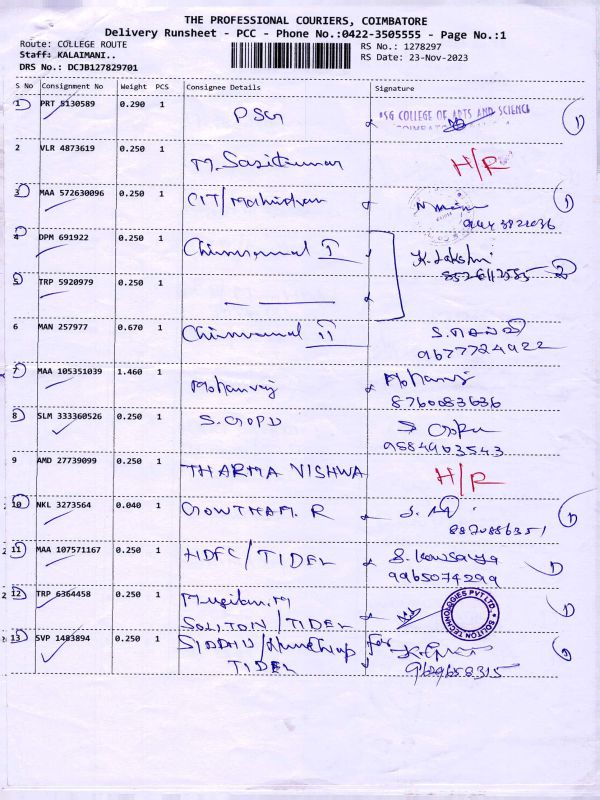 THE PROFESSIONAL COURIERS, COIMBATORE
Delivery Runsheet - PCC - Phone No.:0422-3505555 - Page No.:1
Route: COLLEGE ROUTE RS No.: 1278297
Staff: KALAIMANI.. RS Date: 23-Nov-2023
DRS No.: DCJB127829701
S No Consignment No Weight PCS Consignee Details Signature
1 PRT 5130589 0.290 1 PSG PSG COLLEGE OF ARTS AND SCIENCE 1
COIMBATORE
2 VLR 4873619 0.250 1 M. Sasikumar H/R
3 MAA 572630096 0.250 1 CIT/Mahidran 1
4 DPM 691922 0.250 1 Chinnammal I K. Lakshmi
8526112585 2
5 TRP 5920979 0.250 1
6 MAN 257977 0.670 1 Chinnammal II
9677724922
7 MAA 105351039 1.460 1 Mohanraj Mohanraj
8760083636
8 SLM 333360526 0.250 1 S. GOPU S Gopu
9584963543
9 AMD 27739099 0.250 1 THARMA VISHWA H/R
10 NKL 3273564 0.040 1 GOWTHAM. R 1
8870886351
11 MAA 107571167 0.250 1 HDFC/TIDEL S. Kowsalya
9965074299 1
12 TRP 6364458 0.250 1 Mugilan. M SOLITON TECHNOLOGIES PVT LTD. 1
SOLITON/TIDEL
13 SVP 1483894 0.250 1 for
TIDEL 9629658315 1